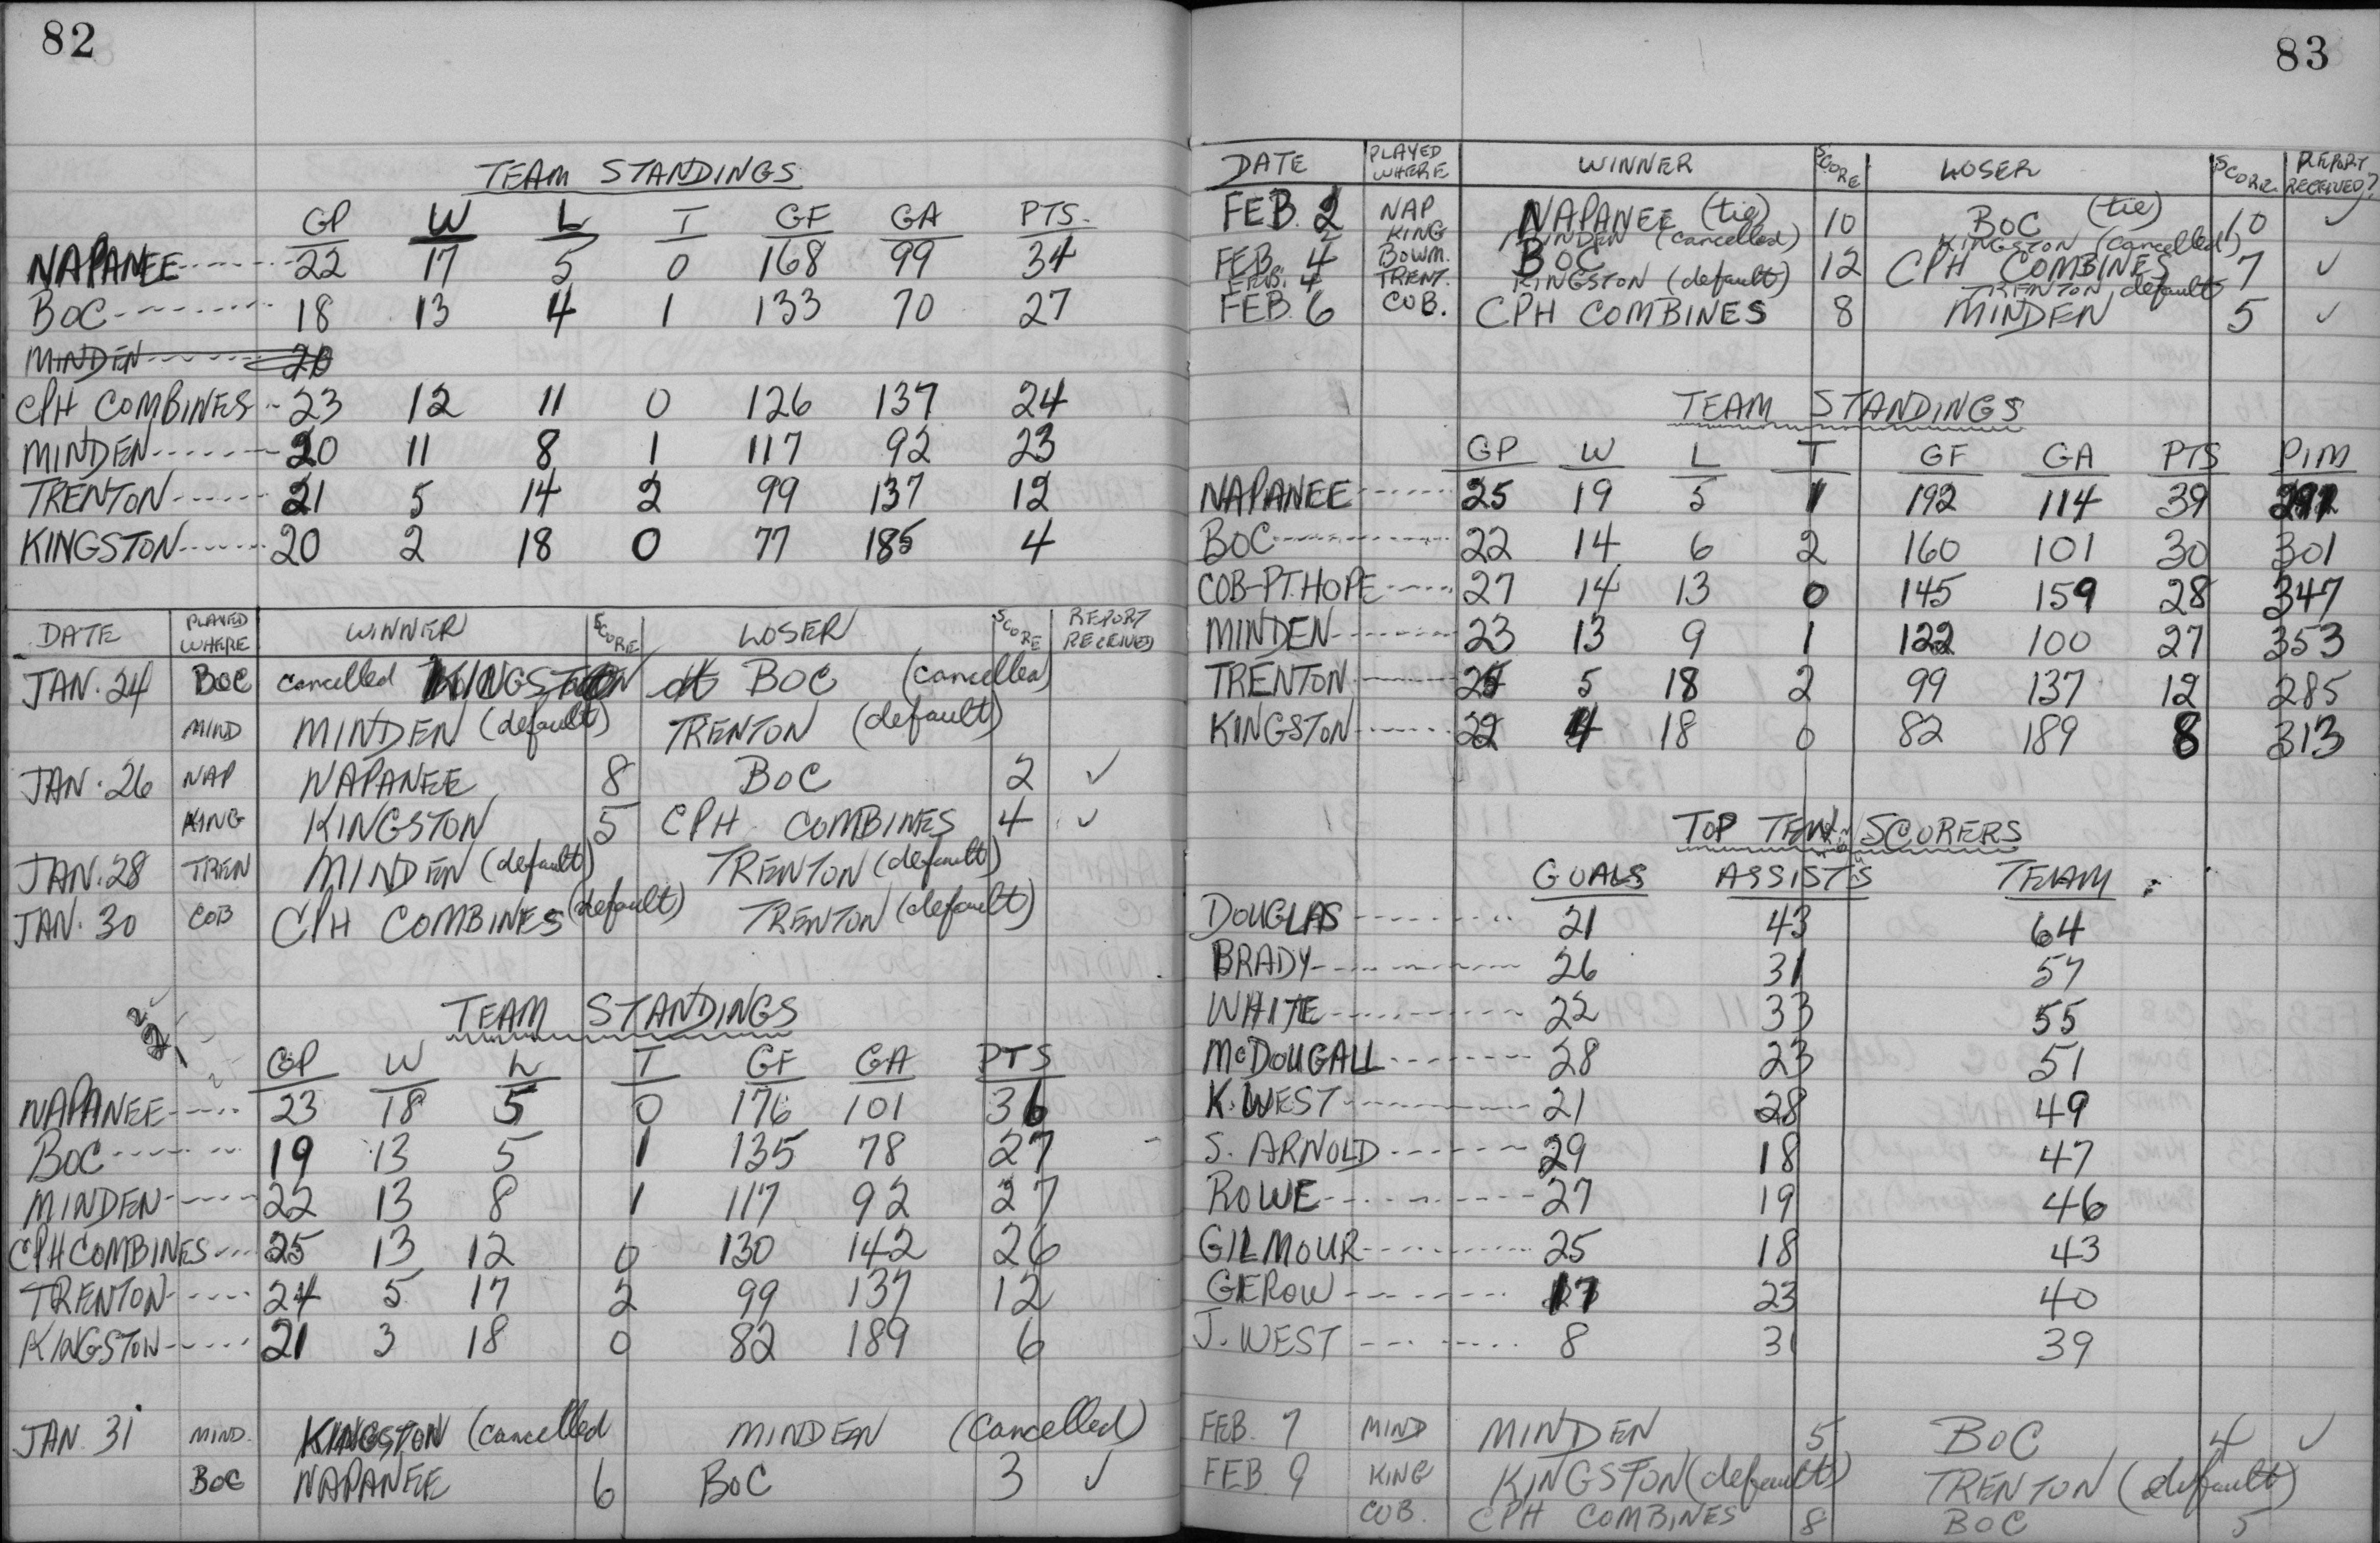 82
TEAM STANDINGS
GP W L T GF GA PTS.
NAPANEE 22 17 5 0 168 99 34
BOC 18 13 4 1 133 70 27
MINDEN 20
CPH COMBINES 23 12 11 0 126 137 24
MINDEN 20 11 8 1 117 92 23
TRENTON 21 5 14 2 99 137 12
KINGSTON 20 2 18 0 77 185 4
DATE PLAYED WHERE WINNER SCORE LOSER SCORE REPORT RECEIVED
JAN. 24 BOC cancelled KINGSTON at BOC (cancelled)
MIND MINDEN (default) TRENTON (default)
JAN. 26 NAP NAPANEE 8 BOC 2 ✓
KING KINGSTON 5 CPH COMBINES 4 ✓
JAN. 28 TREN MINDEN (default) TRENTON (default)
JAN. 30 COB CPH COMBINES (default) TRENTON (default)
TEAM STANDINGS
GP W L T GF GA PTS
NAPANEE 23 18 5 0 176 101 36
BOC 19 13 5 1 135 78 27
MINDEN 22 13 8 1 117 92 27
CPH COMBINES 25 13 12 0 130 142 26
TRENTON 24 5 17 2 99 137 12
KINGSTON 21 3 18 0 82 189 6
JAN. 31 MIND. KINGSTON (cancelled MINDEN (cancelled)
BOC NAPANEE 6 BOC 3 ✓
83
DATE PLAYED WHERE WINNER SCORE LOSER SCORE REPORT RECEIVED?
FEB. 2 NAP NAPANEE (tie) 10 BOC (tie) 10 ✓
KING MINDEN (cancelled) KINGSTON (cancelled)
FEB. 4 BOWM. BOC 12 CPH COMBINES 7 ✓
FEB. 4 TRENT. KINGSTON (default) TRENTON default
FEB. 6 COB. CPH COMBINES 8 MINDEN 5 ✓
TEAM STANDINGS
GP W L T GF GA PTS PIM
NAPANEE 25 19 5 1 192 114 39
BOC 22 14 6 2 160 101 30 301
COB-PT. HOPE 27 14 13 0 145 159 28 347
MINDEN 23 13 9 1 122 100 27 353
TRENTON 25 5 18 2 99 137 12 285
KINGSTON 22 4 18 0 82 189 8 313
TOP TEN SCORERS
GOALS ASSISTS TEAM
DOUGLAS 21 43 64
BRADY 26 31 57
WHITE 22 33 55
McDOUGALL 28 23 51
K. WEST 21 28 49
S. ARNOLD 29 18 47
ROWE 27 19 46
GILMOUR 25 18 43
GEROW 17 23 40
J. WEST 8 31 39
FEB. 7 MIND MINDEN 5 BOC 4 ✓
FEB. 9 KING KINGSTON (default) TRENTON (default)
COB. CPH COMBINES 8 BOC 5